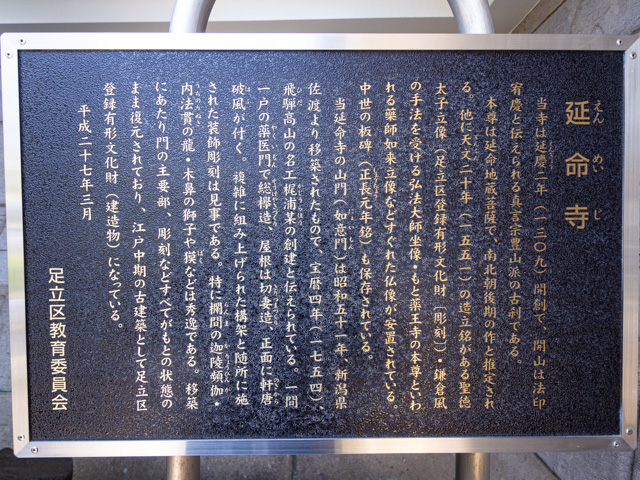 延命寺
えん めい じ
当寺は延慶二年（一三〇九）開創で、開山は法印
宥慶と伝えられる真言宗豊山派の古刹である。
本尊は延命地蔵菩薩で、南北朝後期の作と推定され
る。他に天文二十年（一五五一）の造立銘がある聖徳
太子立像（足立区登録有形文化財［彫刻］）・鎌倉風
の手法を受ける弘法大師坐像・もと薬王寺の本尊といわ
れる薬師如来立像などすぐれた仏像が安置されている。
中世の板碑（正長元年銘）も保存されている。
当延命寺の山門（如意門）は昭和五十一年、新潟県
佐渡より移築されたもので、宝暦四年（一七五四）、
飛騨高山の名工梶浦某の創建と伝えられている。一間
一戸の薬医門で総欅造、屋根は切妻造、正面に軒唐
破風が付く。複雑に組み上げられた構架と随所に施
された装飾彫刻は見事である。特に欄間の迦陵頻伽・
内法貫の龍・木鼻の獅子や獏などは秀逸である。移築
にあたり門の主要部、彫刻などすべてがもとの状態の
まま復元されており、江戸中期の古建築として足立区
登録有形文化財（建造物）になっている。
平成二十七年三月
足立区教育委員会